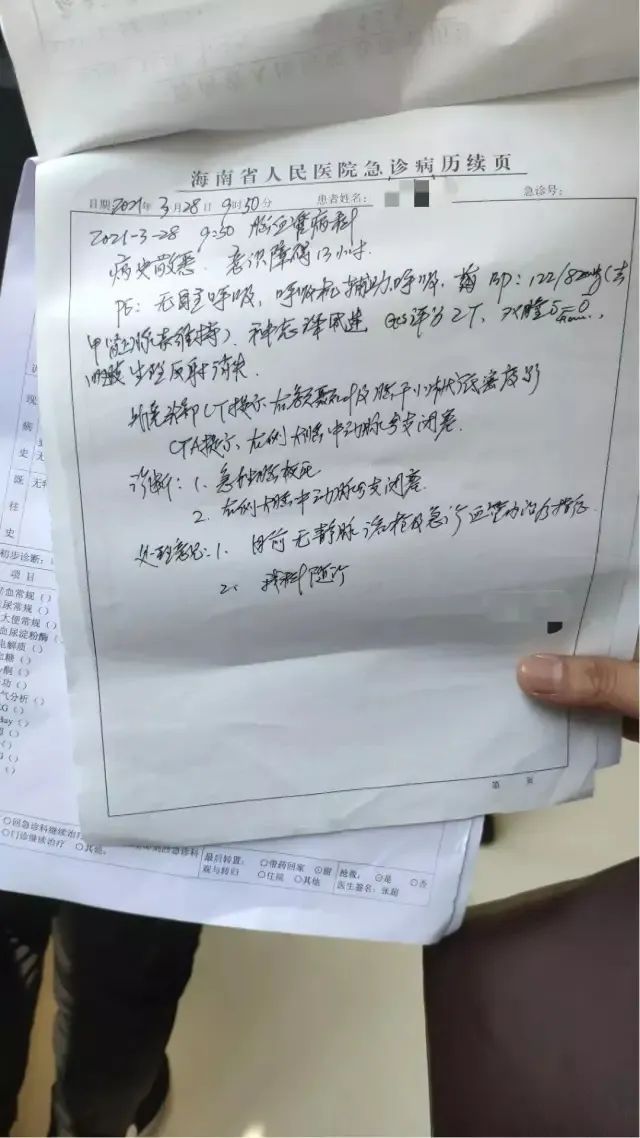 海南省人民医院急诊病历续页
日期 2021年 3月 28日 9时 50分 患者姓名: 急诊号:
2021-3-28 9:50 脑血管病科
病史敬悉. 意识障碍13小时.
PE: 无自主呼吸, 呼吸机辅助呼吸, BP: 122/82mmHg(去
甲肾上腺素维持). 神志深昏迷 GCS评分2T, 双瞳5
生理反射消失.
头颅CT提示 及脑干 低密度影
CTA提示. 右侧大脑中动脉分支闭塞.
诊断: 1. 急性脑梗死
2. 右侧大脑中动脉分支闭塞.
处理意见: 1. 目前无静脉溶栓及急诊血管内治疗指征.
2. 我科随诊
第 页
现
病
史 无
既 无特
往
史
初步诊断:
项目
血常规 ( )
尿常规 ( )
大便常规 ( )
血尿淀粉酶 ( )
电解质 ( )
血糖 ( )
气分析 ( )
○回急诊科继续治疗
○门诊继续治疗 ○其他:
最后转置: ○带药回家
观与转归 ○住院 ○其他
抢救: ⊙是 ○否
医生签名: 张